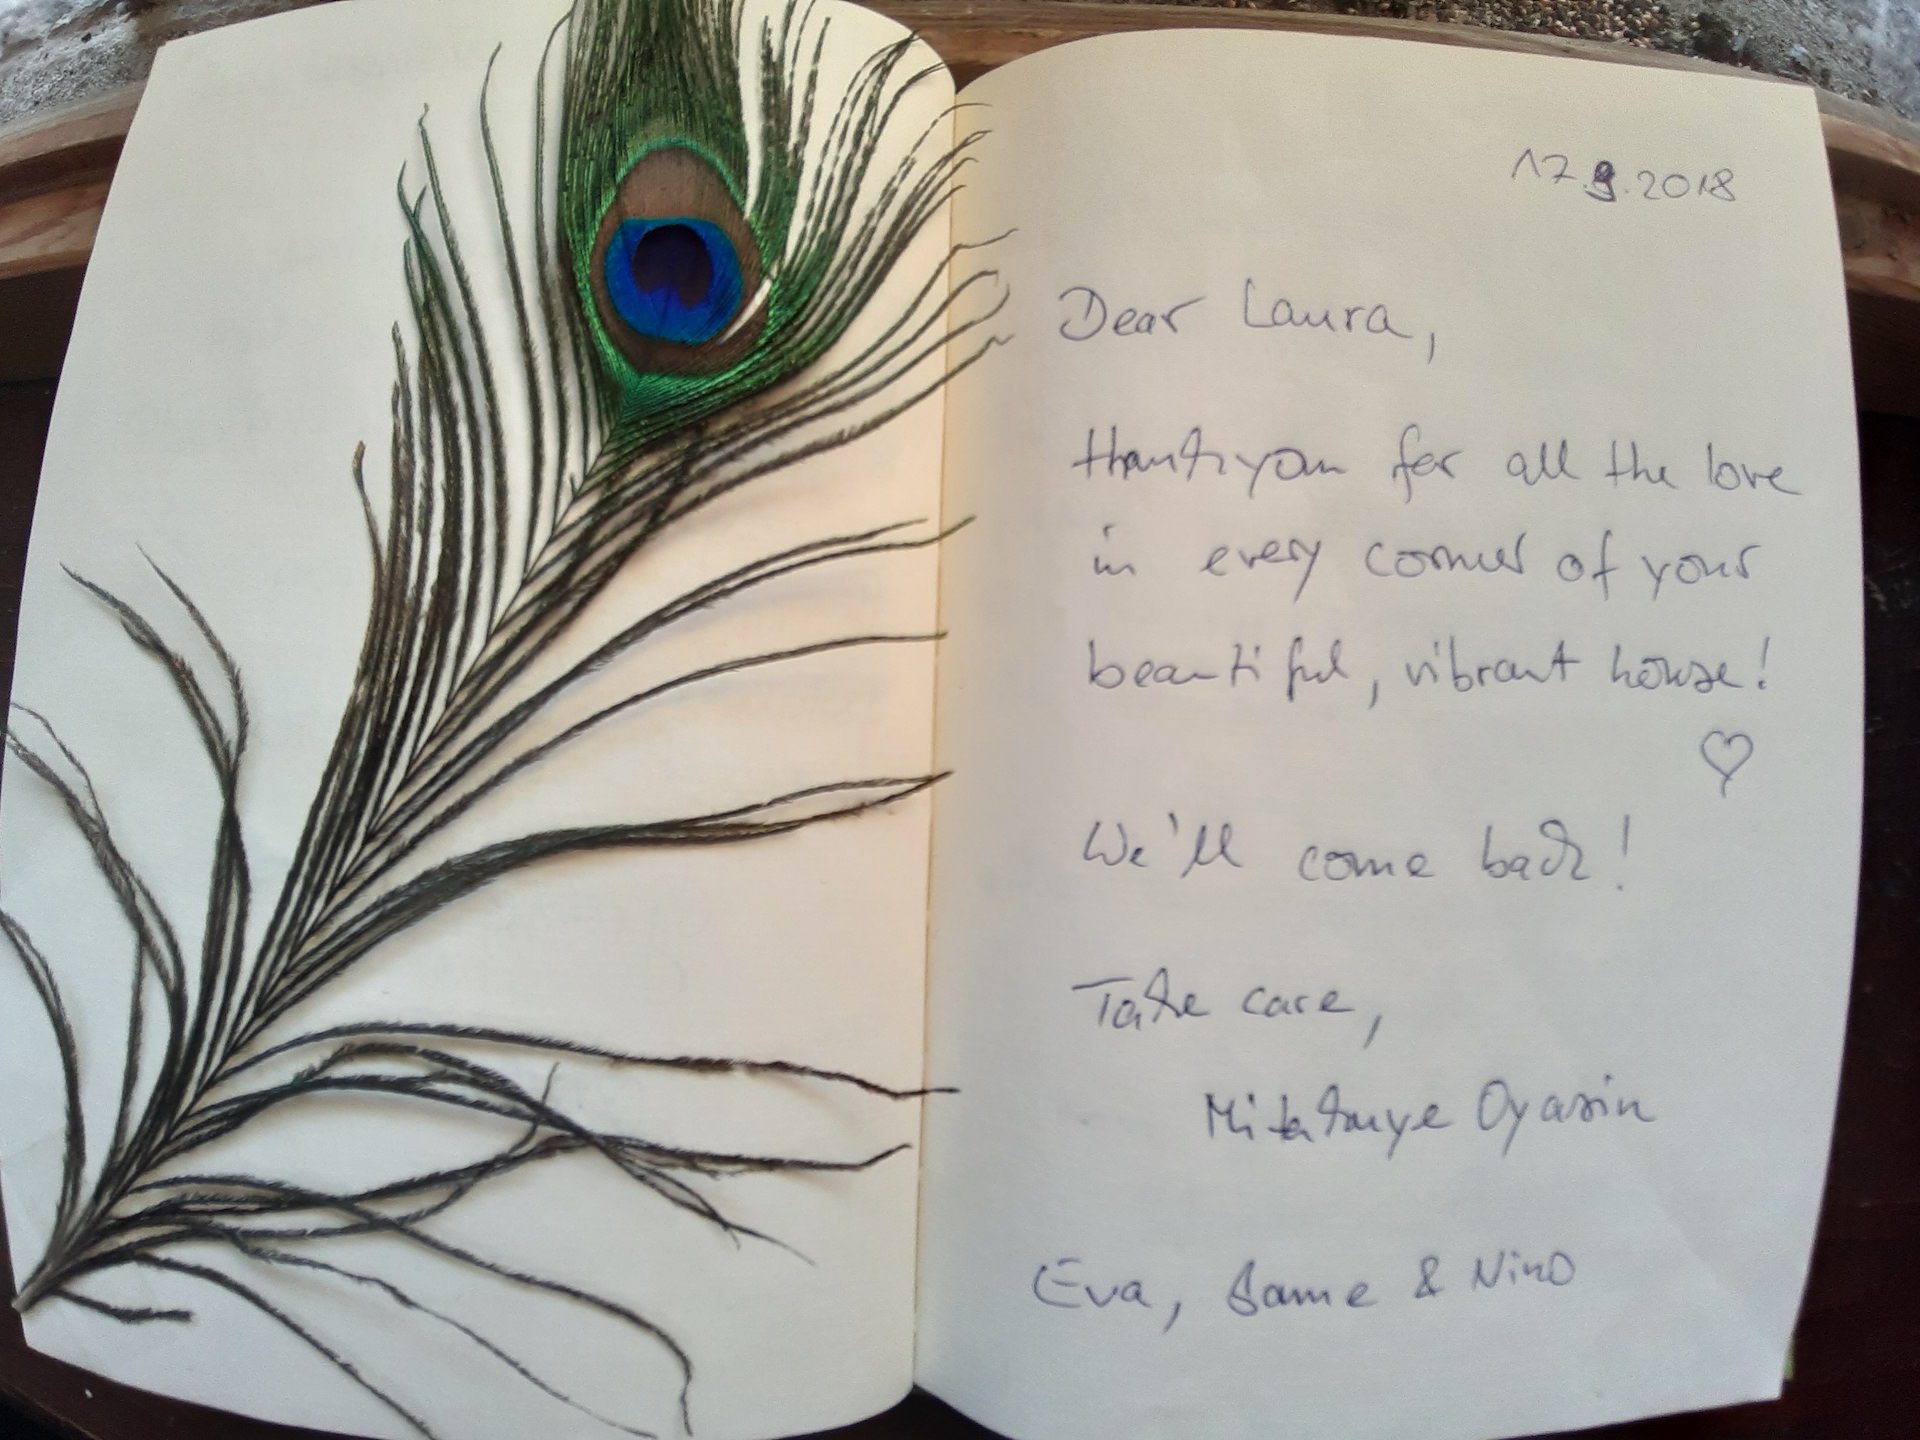 17.9.2018
Dear Laura,
thank you for all the love
in every corner of your
beautiful, vibrant house!
♡
We'll come back!
Take care,
Mitakuye Oyasin
Eva, Same & Nino